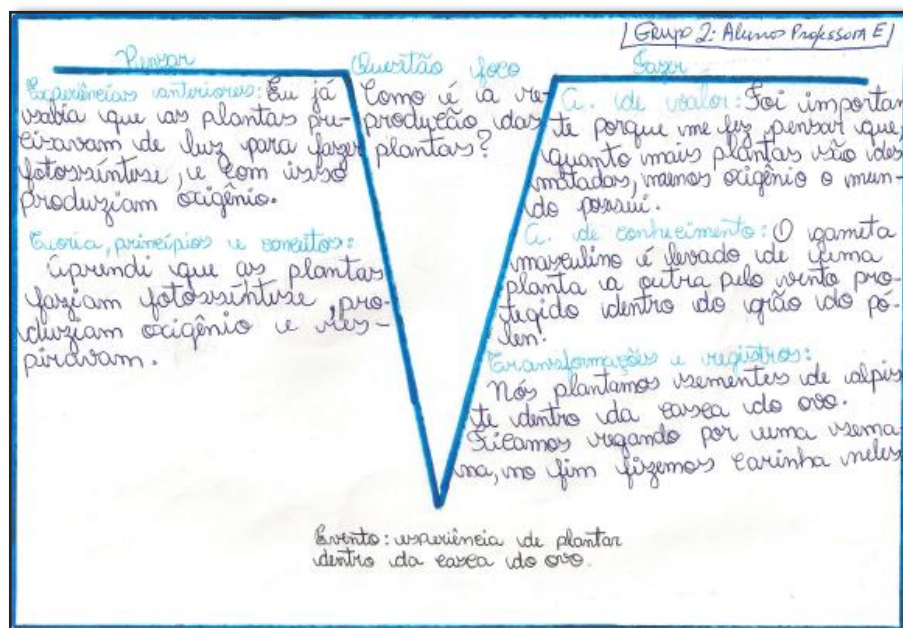 [Grupo 2: Alunos Professora E]
Pensar
Experiências anteriores: Eu já
sabia que as plantas pre-
cisavam de luz para fazer
fotossíntese, e com isso
produziam oxigênio.
Teoria, princípios e conceitos:
Aprendi que as plantas
faziam fotossíntese, pro-
duziam oxigênio e res-
piravam.
Questão foco
Como é a re-
produção das
plantas?
Fazer
A. de valor: Foi importan
te porque me fez pensar que,
quanto mais plantas são des
matadas, menos oxigênio o mun-
do possui.
A. de conhecimento: O gameta
masculino é levado de uma
planta a outra pelo vento pro-
tegido dentro do grão do pó-
len.
Transformações e registros:
Nós plantamos sementes de alpis
te dentro da casca do ovo.
Ficamos regando por uma sema
na, no fim fizemos carinha neles
Evento: experiência de plantar
dentro da casca do ovo.